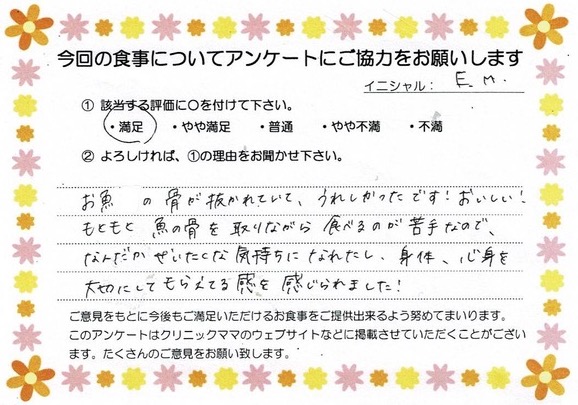 今回の食事についてアンケートにご協力をお願いします
イニシャル： E. M.
① 該当する評価に○を付けて下さい。
・満足 ・やや満足 ・普通 ・やや不満 ・不満
② よろしければ、①の理由をお聞かせ下さい。
お魚 の骨が抜かれていて、うれしかったです！おいしい！
もともと 魚の骨を 取りながら 食べるのが 苦手なので、
なんだか ぜいたくな 気持ちに なれたし、身体、心身を
大切にして もらえてる 感を 感じられました！
ご意見をもとに今後もご満足いただけるお食事をご提供出来るよう努めてまいります。
このアンケートはクリニックママのウェブサイトなどに掲載させていただくことがござい
ます。たくさんのご意見をお願い致します。